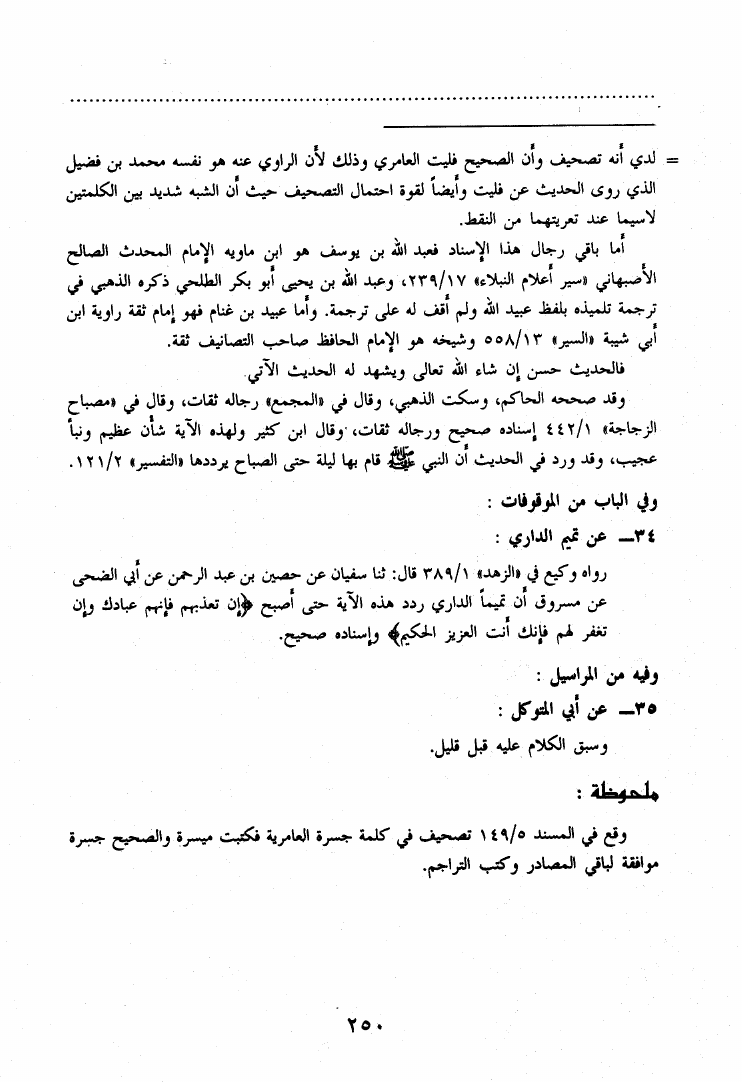 = لدي أنه تصحيف وأن الصحيح فليت العامري وذلك لأن الراوي عنه هو نفسه محمد بن فضيل
الذي روى الحديث عن فليت وأيضاً لقوة احتمال التصحيف حيث أن الشبه شديد بين الكلمتين
لاسيما عند تعريتهما من النقط.
أما باقي رجال هذا الإسناد فعبد الله بن يوسف هو ابن ماويه الإمام المحدث الصالح
الأصبهاني «سير أعلام النبلاء» ٢٣٩/١٧، وعبد الله بن يحيى أبو بكر الطلحي ذكره الذهبي في
ترجمة تلميذه بلفظ عبيد الله ولم أقف له على ترجمة. وأما عبيد بن غنام فهو إمام ثقة راوية ابن
أبي شيبة «السير» ٥٥٨/١٣ وشيخه هو الإمام الحافظ صاحب التصانيف ثقة.
فالحديث حسن إن شاء الله تعالى ويشهد له الحديث الآتي.
وقد صححه الحاكم، وسكت الذهبي، وقال في «المجمع» رجاله ثقات، وقال في «مصباح
الزجاجة» ٤٤٢/١ إسناده صحيح ورجاله ثقات، وقال ابن كثير ولهذه الآية شأن عظيم ونبأ
عجيب، وقد ورد في الحديث أن النبي ﷺ قام بها ليلة حتى الصباح يرددها «التفسير» ١٢١/٢.
وفي الباب من الموقوفات :
٣٤ــ عن تميم الداري :
رواه وكيع في «الزهد» ٣٨٩/١ قال: ثنا سفيان عن حصين بن عبد الرحمن عن أبي الضحى
عن مسروق أن تميماً الداري ردد هذه الآية حتى أصبح ﴿إن تعذبهم فإنهم عبادك وإن
تغفر لهم فإنك أنت العزيز الحكيم﴾ وإسناده صحيح.
وفيه من المراسيل :
٣٥ــ عن أبي المتوكل :
وسبق الكلام عليه قبل قليل.
ملحوظة :
وقع في المسند ١٤٩/٥ تصحيف في كلمة جسرة العامرية فكتبت ميسرة والصحيح جسرة
موافقة لباقي المصادر وكتب التراجم.
٢٥٠